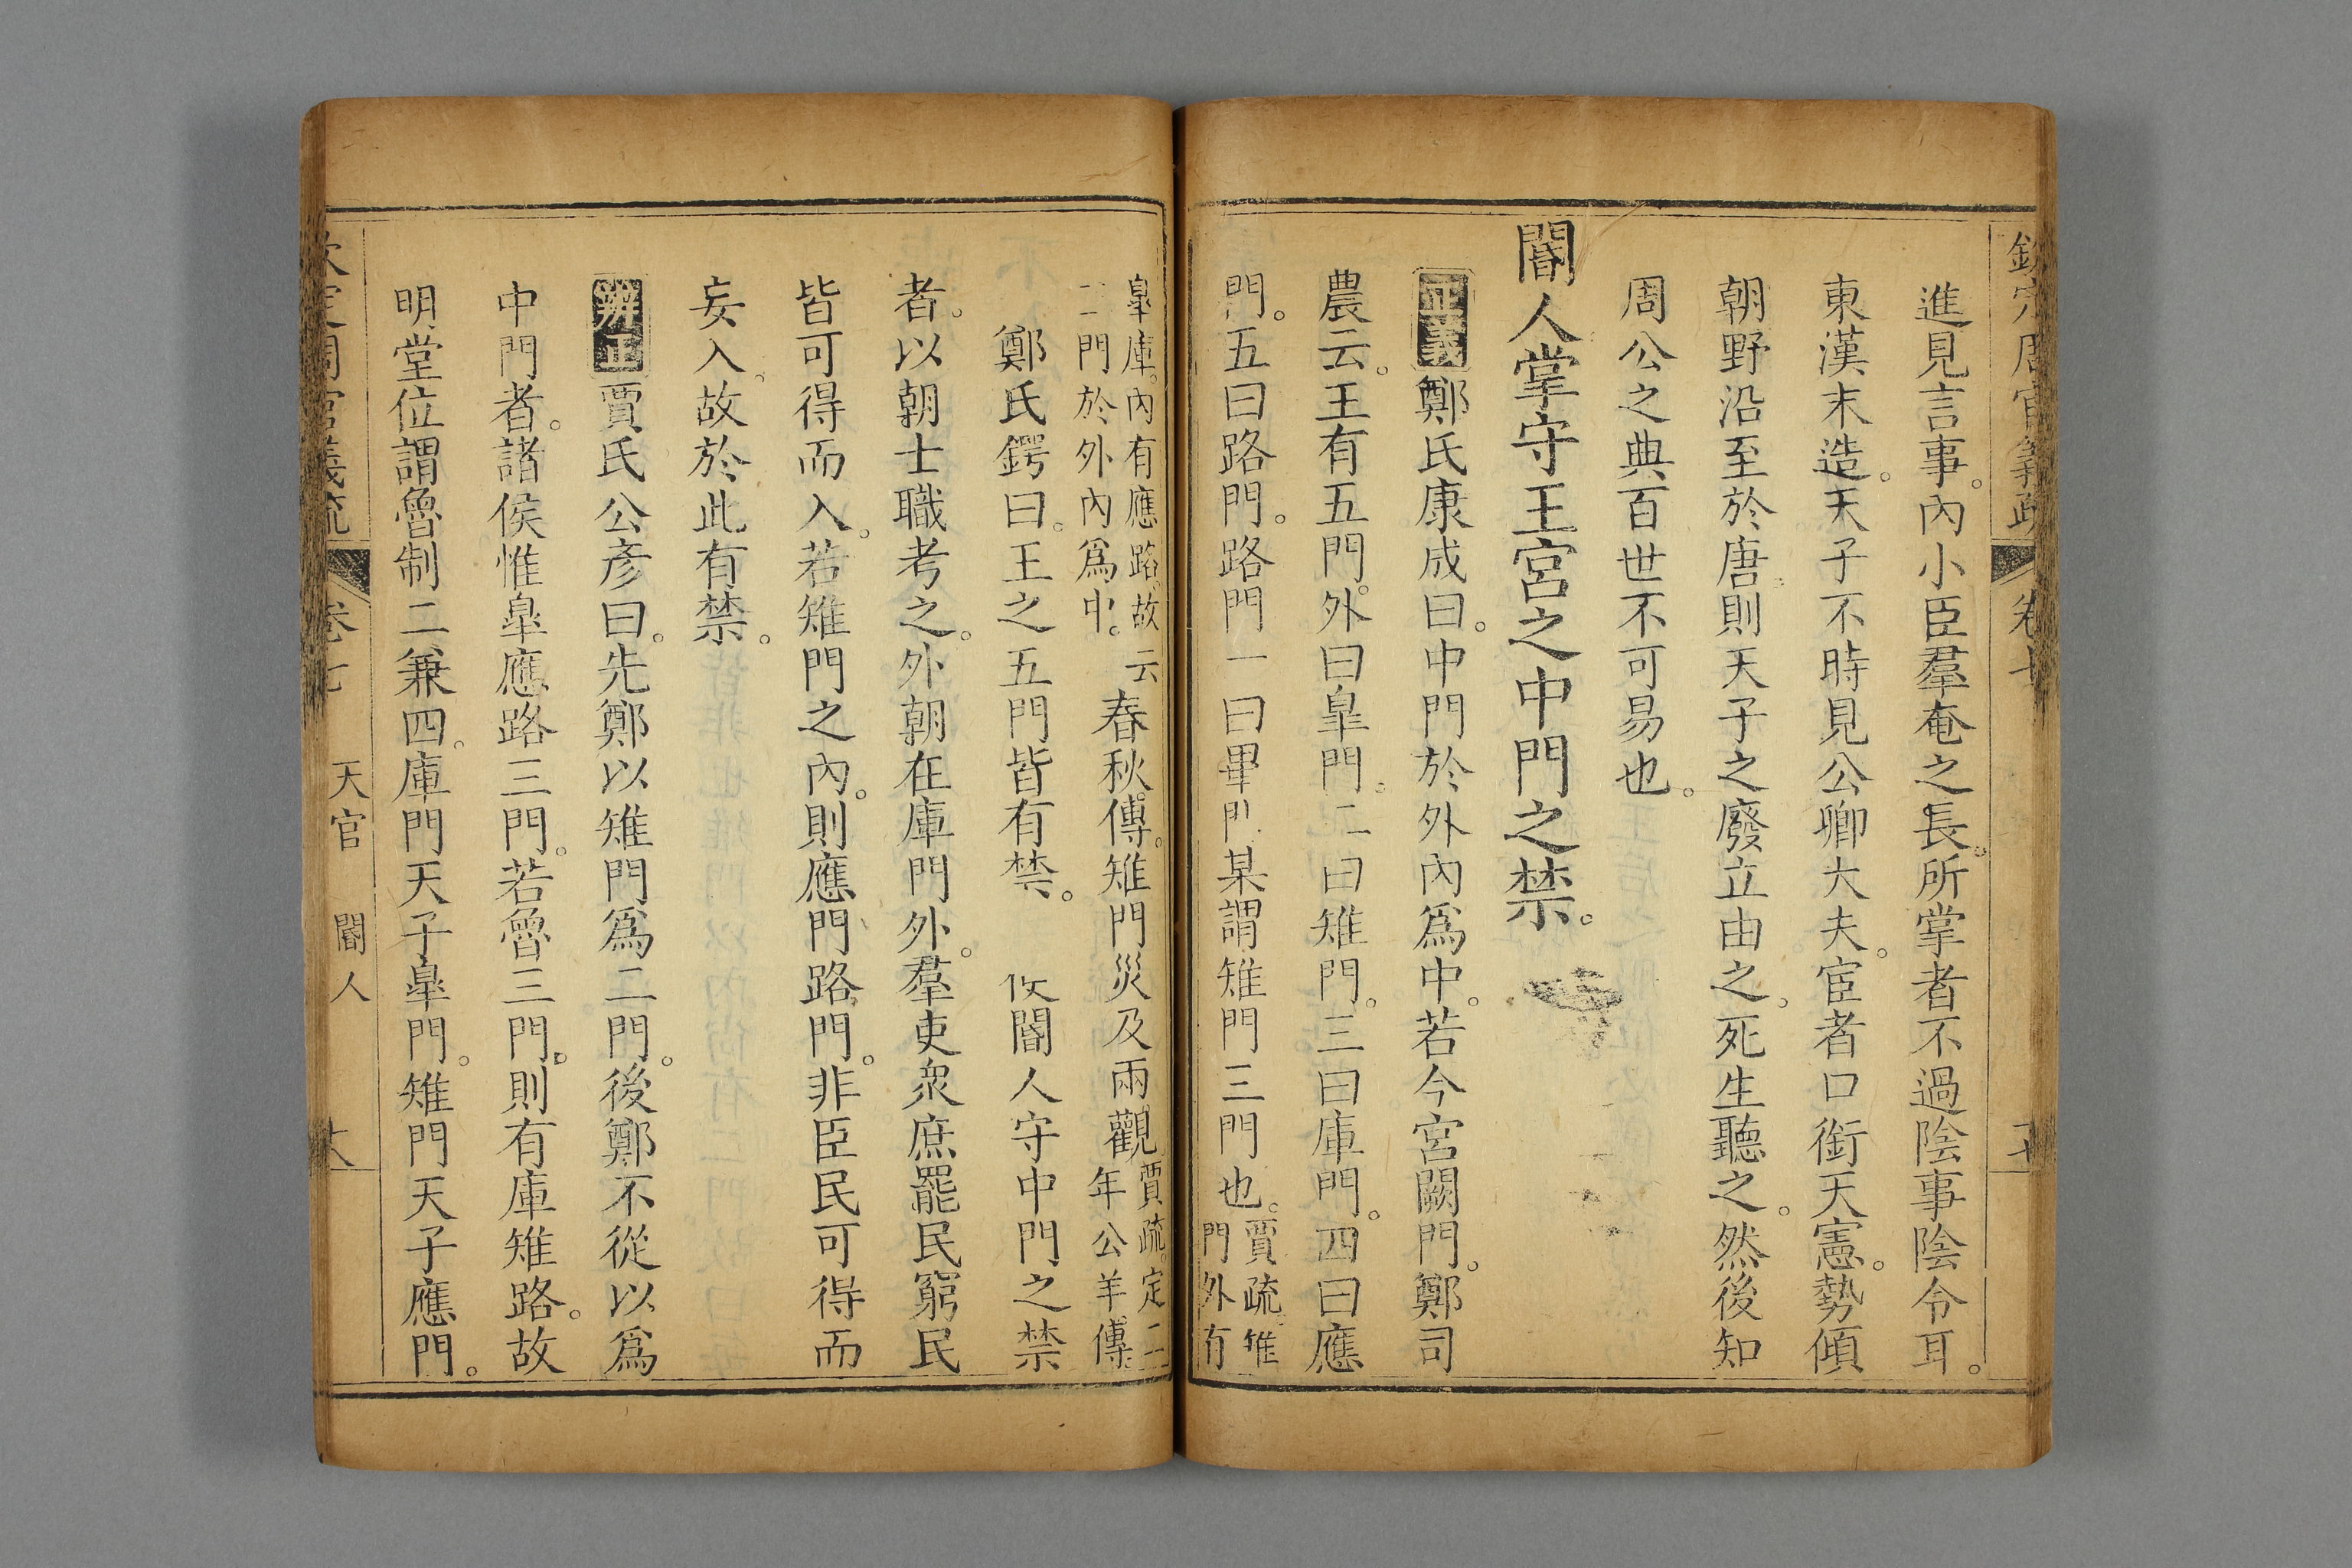 欽定周官義疏 卷七
進見言事。內小臣羣奄之長。所掌者不過陰事陰令耳。
東漢末造。天子不時見公卿大夫。宦者口銜天憲。勢傾
朝野沿至於唐。則天子之廢立由之。死生聽之。然後知
周公之典百世不可易也。
閽人掌守王宮之中門之禁。
正義鄭氏康成曰。中門於外內爲中。若今宮闕門。鄭司
農云。王有五門。外曰臯門。二曰雉門。三曰庫門。四曰應
門。五曰路門。路門一曰畢門。某謂雉門三門也。
賈疏。雉
門外有
臯庫。內有應路。故云
二門於外內爲中。
春秋傳。雉門災及兩觀
賈疏。定二
年公羊傳。
鄭氏鍔曰。王之五門皆有禁。 攸閽人守中門之禁
者。以朝士職考之。外朝在庫門外。羣吏衆庶罷民窮民
皆可得而入。若雉門之內。則應門路門。非臣民可得而
妄入。故於此有禁。
辨正賈氏公彥曰。先鄭以雉門爲二門。後鄭不從以爲
中門者。諸侯惟臯應路三門。若魯三門。則有庫雉路。故
明堂位謂魯制二兼四。庫門天子臯門。雉門天子應門。
欽定周官義疏 卷七 天官 閽人